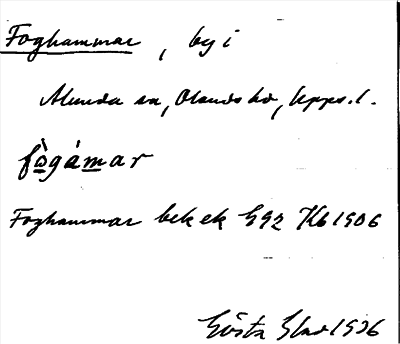 Foghammar, by i
Alunda sn, Olands hd, Upps. l.
fògámar
Foghammar bek ek G92 Kb 1906
Gösta 1936